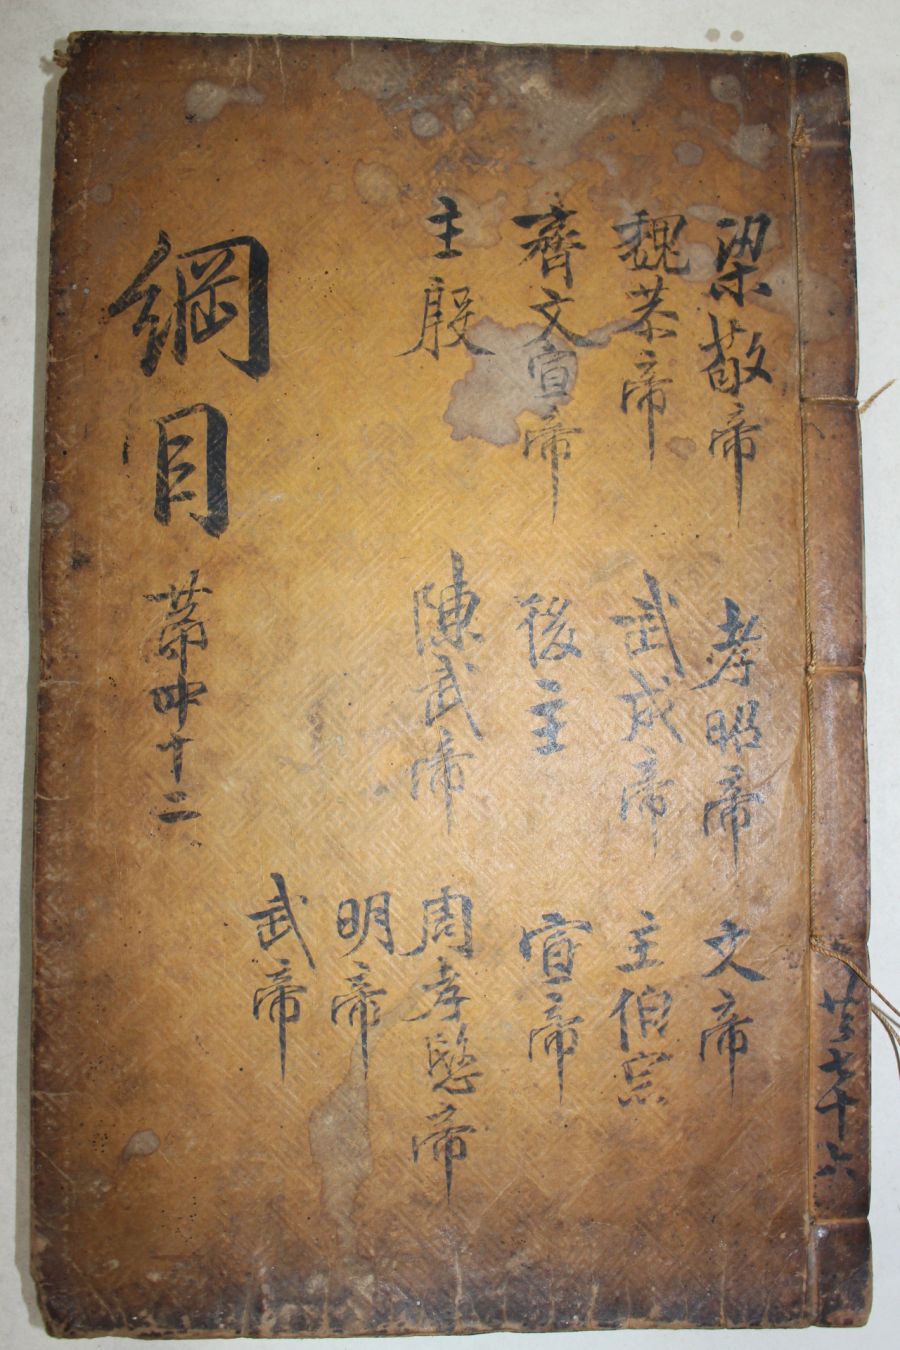 共七十六
梁敬帝
魏恭帝
齊文宣帝
主殷
孝昭帝
武成帝
後主
陳武帝
文帝
主伯宗
宣帝
周孝愍帝
明帝
武帝
綱目
苐四十二